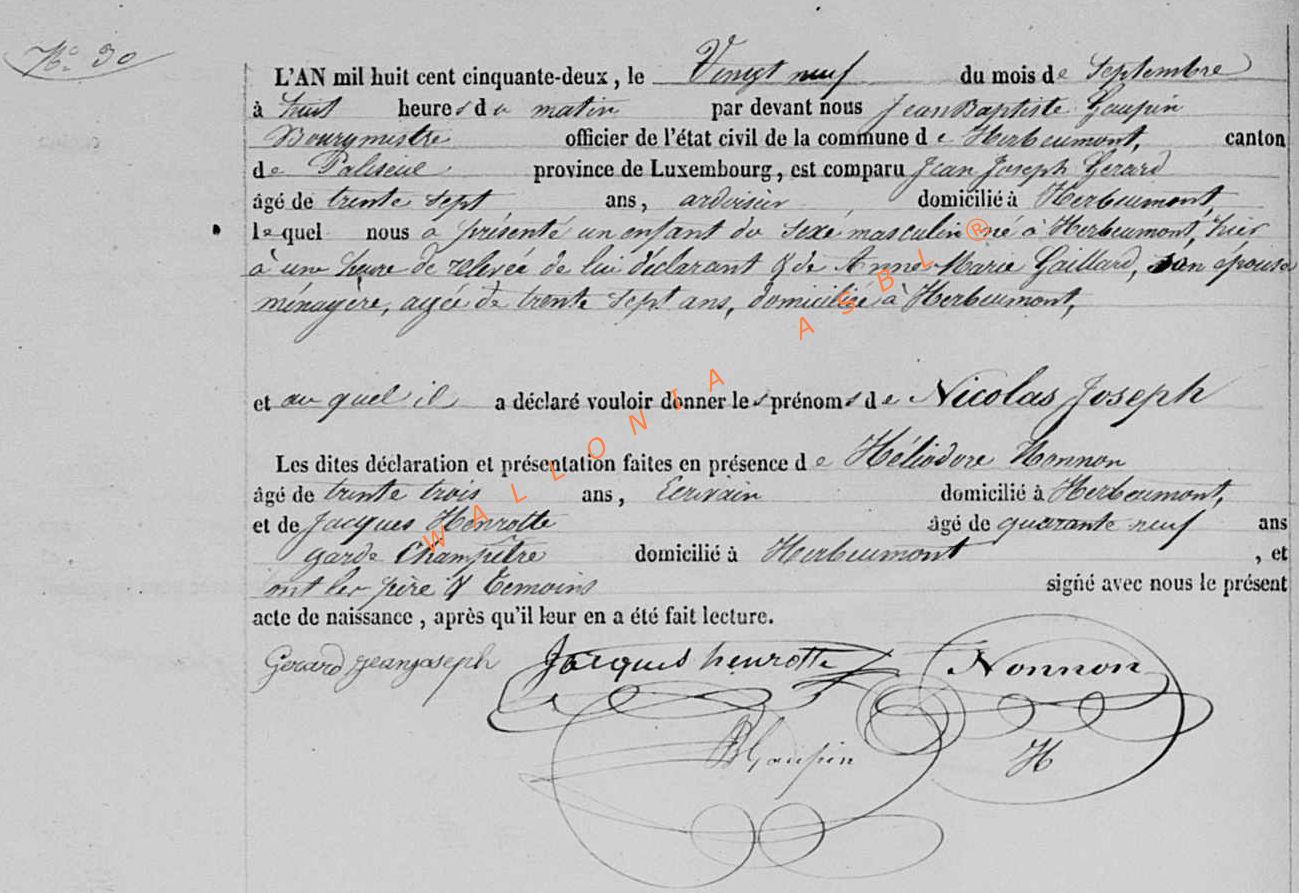 N.° 30
L'AN mil huit cent cinquante-deux, le Vingt neuf du mois de Septembre
à huit heures du matin par devant nous Jean Baptiste Gaupin
Bourgmestre officier de l'état civil de la commune de Herbeumont, canton
de Paliseul province de Luxembourg, est comparu Jean Joseph Gerard
âgé de trente sept ans, ardoisier domicilié à Herbeumont
lequel nous a présenté un enfant du sexe masculin né à Herbeumont, hier
à une heure de relevée de lui déclarant & de Anne Marie Gaillard, son épouse
ménagère, agée de trente sept ans, domiciliée à Herbeumont,
et au quel il a déclaré vouloir donner les prénoms de Nicolas Joseph
Les dites déclaration et présentation faites en présence de Héliodore Nonnon
âgé de trente trois ans, Ecrivain domicilié à Herbeumont,
et de Jacques Henrotte âgé de quarante neuf ans
garde Champêtre domicilié à Herbeumont, et
ont les père & Temoins signé avec nous le présent
acte de naissance, après qu'il leur en a été fait lecture.
Gerard jean joseph Jacques henrotte Nonnon
JB Gaupin H
WALLONIA ASBL ®